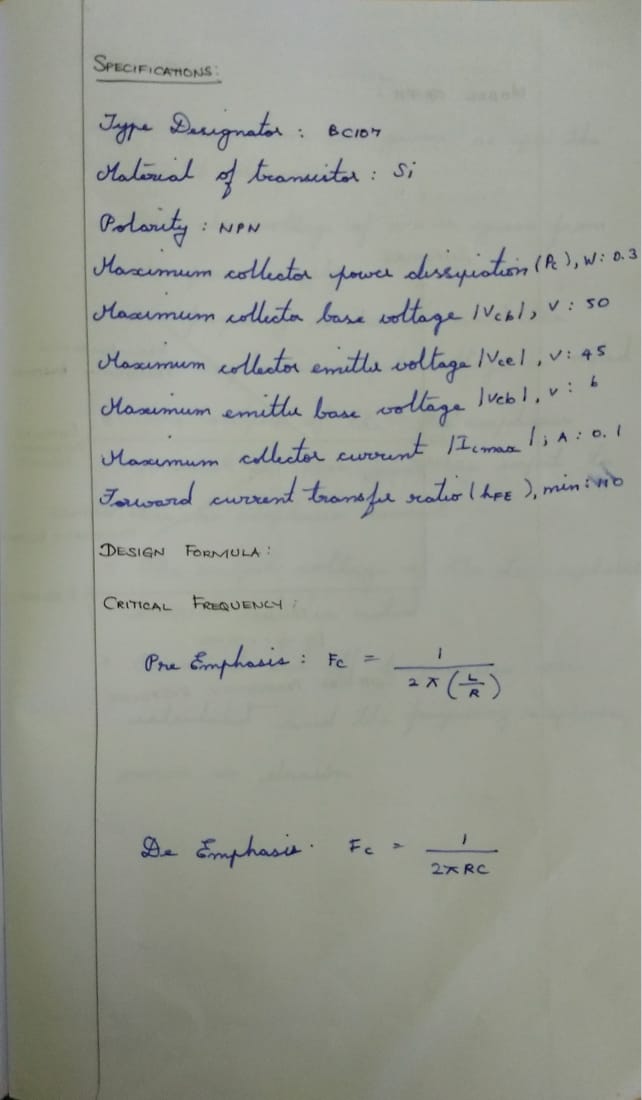 SPECIFICATIONS:
Type Designator : BC107
Material of transistor : Si
Polarity : NPN
Maximum collector power dissipation (Pc), W: 0.3
Maximum collector base voltage |Vcb|, V : 50
Maximum collector emitter voltage |Vce|, V: 45
Maximum emitter base voltage |Veb|, V : 6
Maximum collector current |Icmax|, A : 0.1
Forward current transfer ratio (hFE), min: 110
DESIGN FORMULA :
CRITICAL FREQUENCY :
Pre Emphasis : Fc = 1 / 2π(L/R)
De Emphasis. Fc = 1 / 2πRC